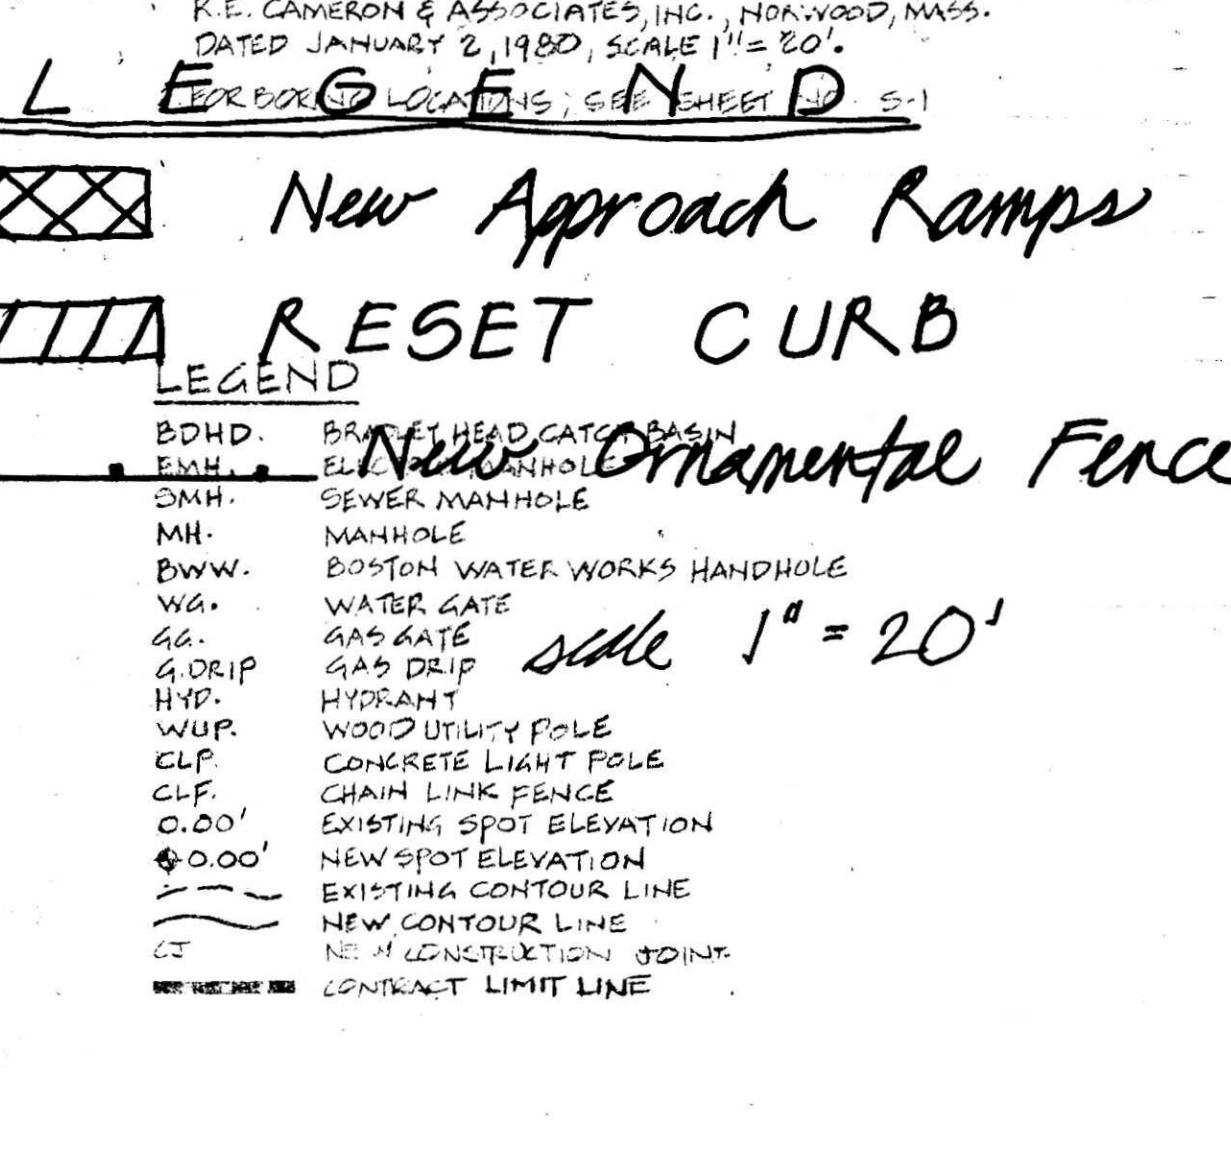 R.E. CAMERON & ASSOCIATES, INC., NORWOOD, MASS.
DATED JANUARY 2, 1980, SCALE 1"= 20'.
LEGEND
FOR BORING LOCATIONS; SEE SHEET NO. S-1
New Approach Ramps
RESET CURB
LEGEND
BDHD. BRADLEY HEAD CATCH BASIN
New Ornamental Fence
EMH. ELECTRIC MANHOLE
SMH. SEWER MANHOLE
MH. MANHOLE
BWW. BOSTON WATER WORKS HANDHOLE
WG. WATER GATE
scale 1" = 20'
GG. GAS GATE
G.DRIP GAS DRIP
HYD. HYDRANT
WUP. WOOD UTILITY POLE
CLP. CONCRETE LIGHT POLE
CLF. CHAIN LINK FENCE
0.00' EXISTING SPOT ELEVATION
0.00' NEW SPOT ELEVATION
EXISTING CONTOUR LINE
NEW CONTOUR LINE
CJ NEW CONSTRUCTION JOINT
CONTRACT LIMIT LINE